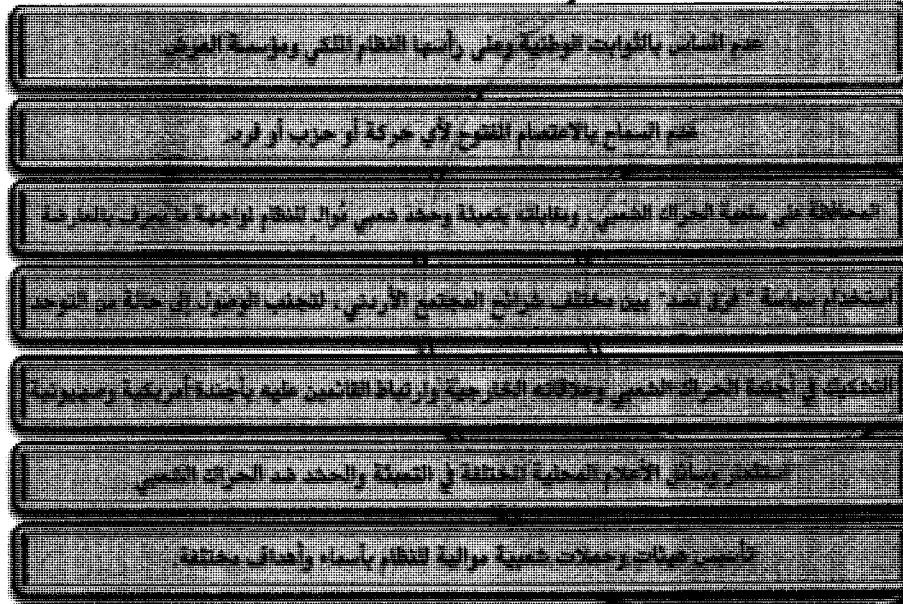 عدم المساس بالثوابت الوطنية وعلى رأسها النظام الملكي ومؤسسة العرش
عدم السماح بالاعتصام المفتوح لأي حركة أو حزب أو فرد
المحافظة على سلمية الحراك الشعبي، ومقابلته بتعبئة وحشد شعبي مُوال للنظام لمواجهة ما يعرف بالمعارضة
استخدام سياسة "فرق تسد" بين مختلف شرائح المجتمع الأردني، لتجنب الوصول إلى حالة من التوحد
التشكيك في أجندة الحراك الشعبي وعلاقاته الخارجية وارتباط القائمين عليه بأجندة أمريكية وصهيونية
استثمار وسائل الأعلام المحلية المختلفة في التعبئة والحشد ضد الحراك الشعبي
تأسيس هيئات وحملات شعبية موالية للنظام بأسماء وأهداف مختلفة